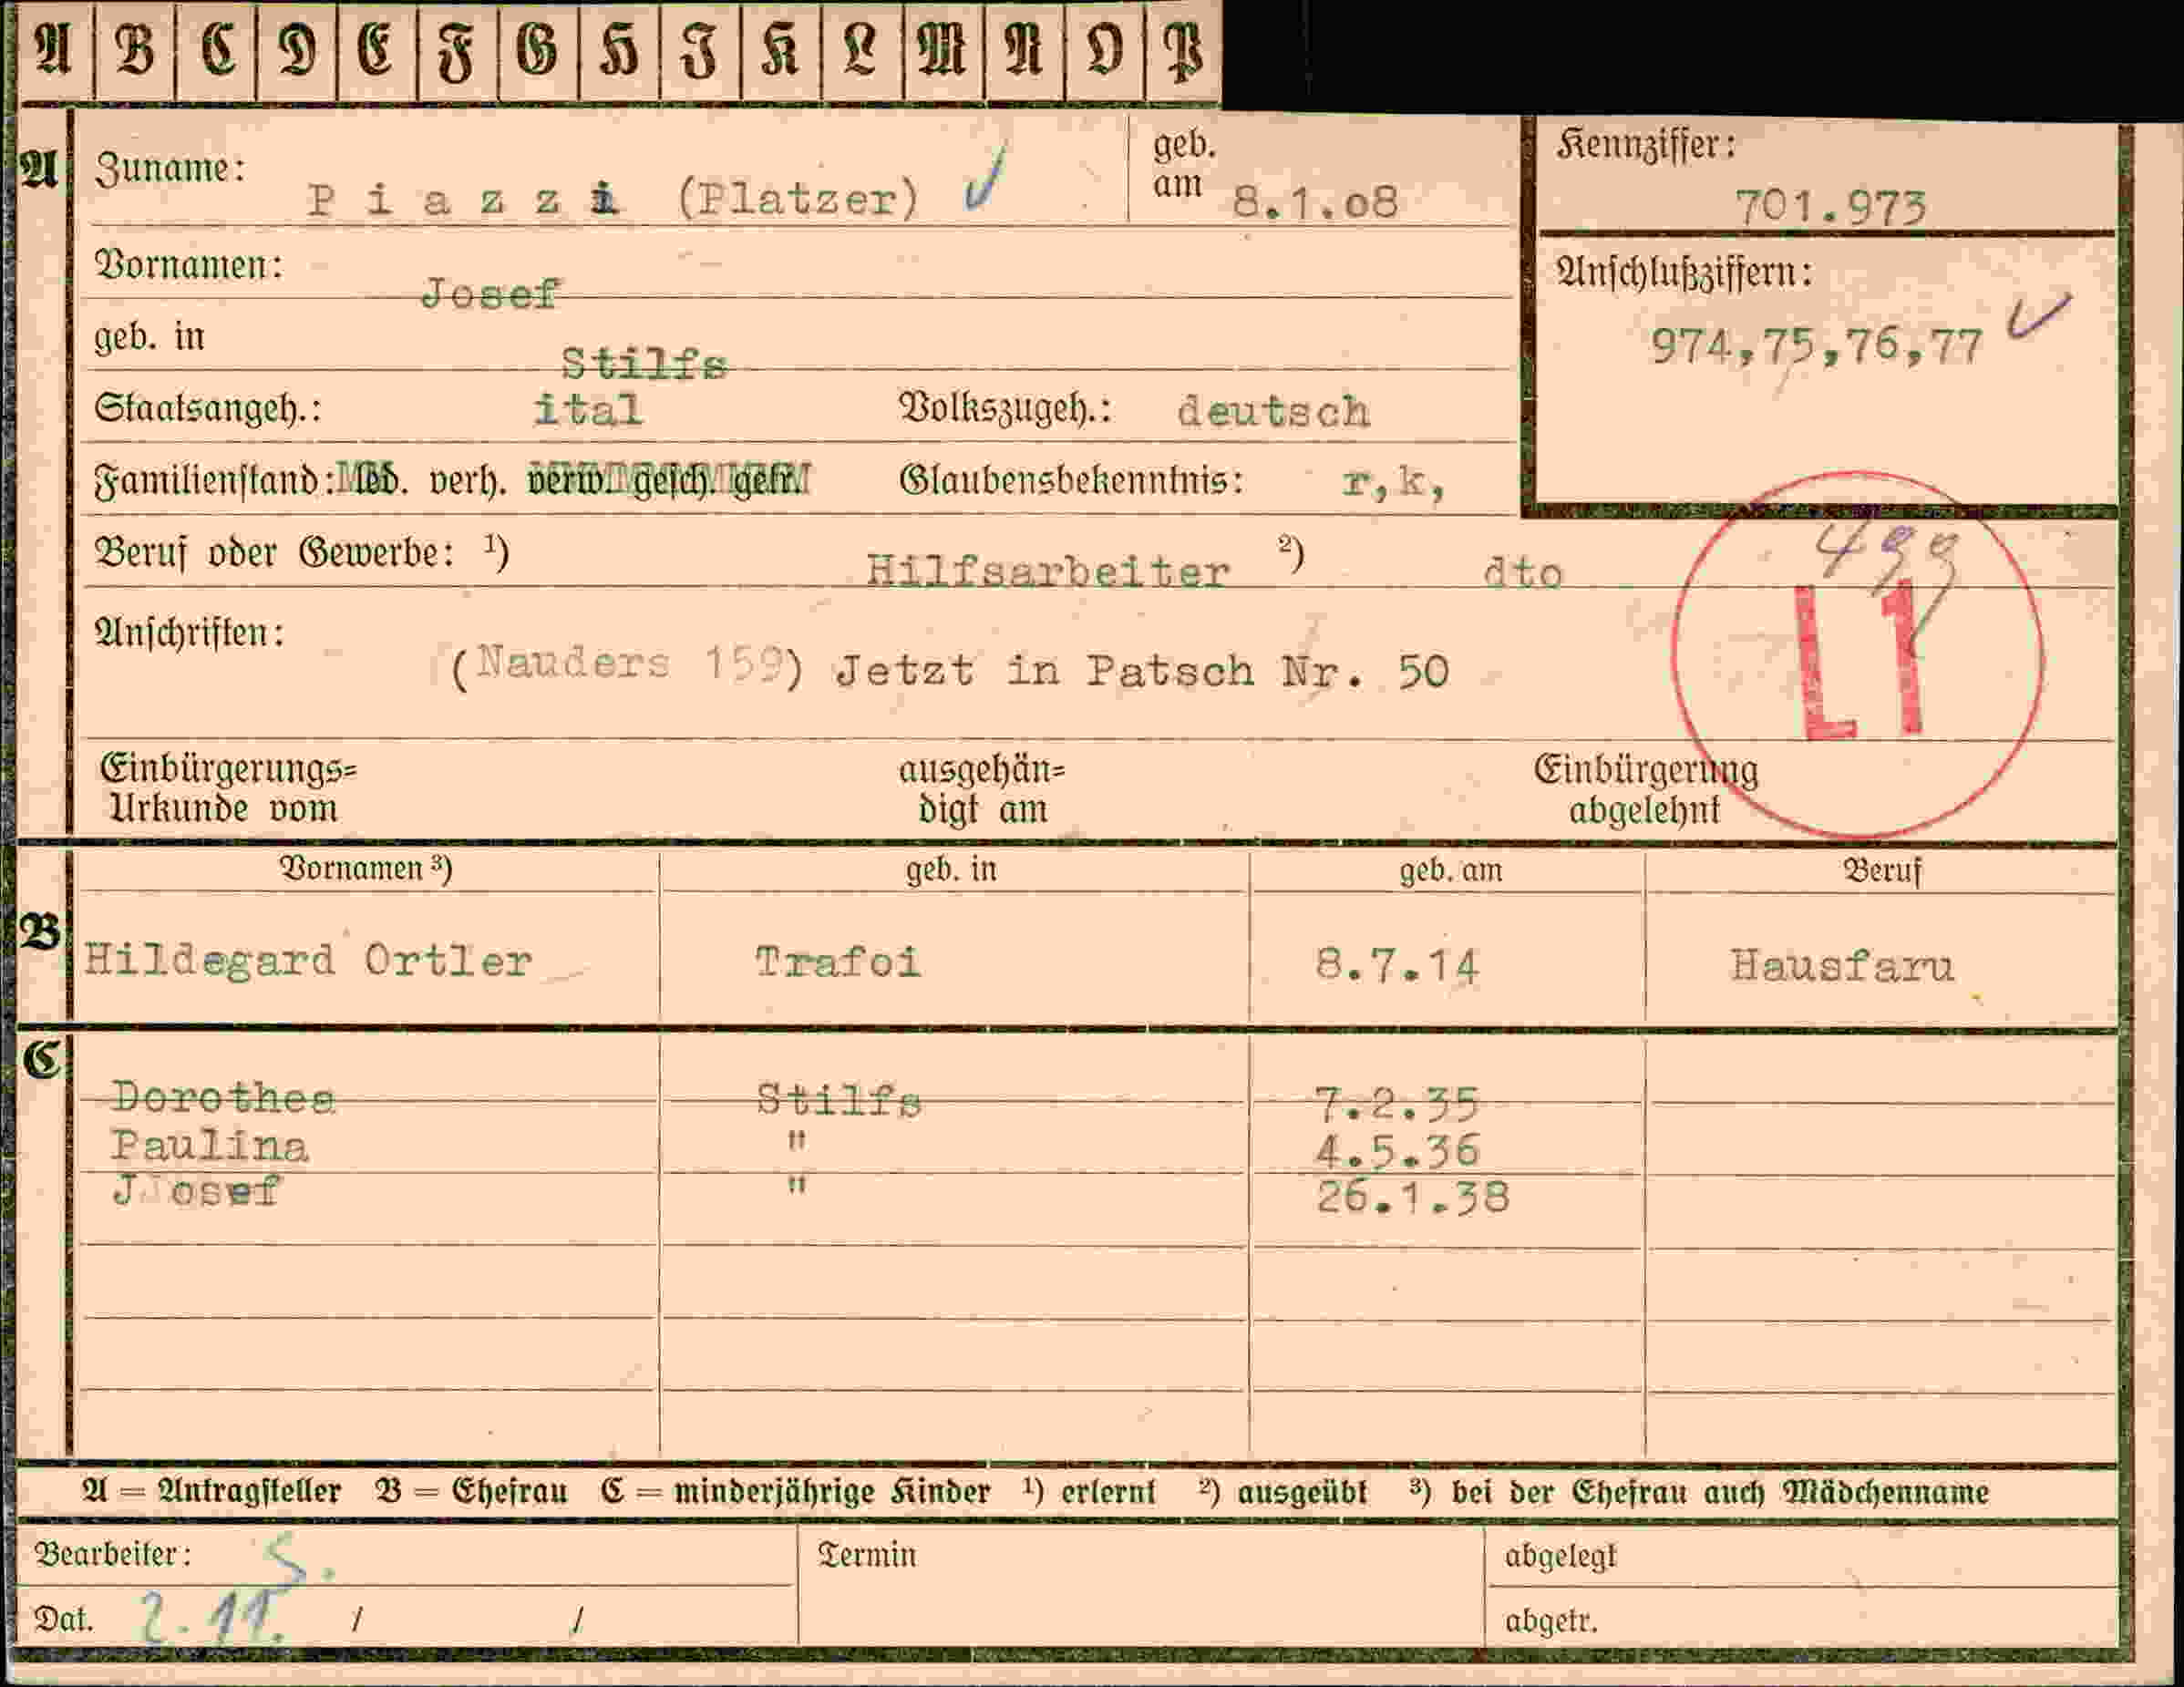 A B C D E F G H I K L M N O P
A Zuname: Piazzi (Platzer) geb. am 8.1.o8
Kennziffer: 701.973
Vornamen: Josef
Anschlußziffern: 974,75,76,77
geb. in Stilfs
Staatsangeh.: ital Volkszugeh.: deutsch
Familienstand: led. verh. verw. gesch. getr. Glaubensbekenntnis: r,k,
Beruf oder Gewerbe: ¹) Hilfsarbeiter ²) dto
499
L1
Anschriften: (Nauders 159) Jetzt in Patsch Nr. 50
Einbürgerungs= ausgehän= Einbürgerung
Urkunde vom digt am abgelehnt
Vornamen ³) geb. in geb. am Beruf
B Hildegard Ortler Trafoi 8.7.14 Hausfaru
C
Dorothea Stilfs 7.2.35
Paulina " 4.5.36
Josef " 26.1.38
A = Antragsteller B = Ehefrau C = minderjährige Kinder ¹) erlernt ²) ausgeübt ³) bei der Ehefrau auch Mädchenname
Bearbeiter: S. Termin abgelegt
Dat. 2.11. / / abgetr.